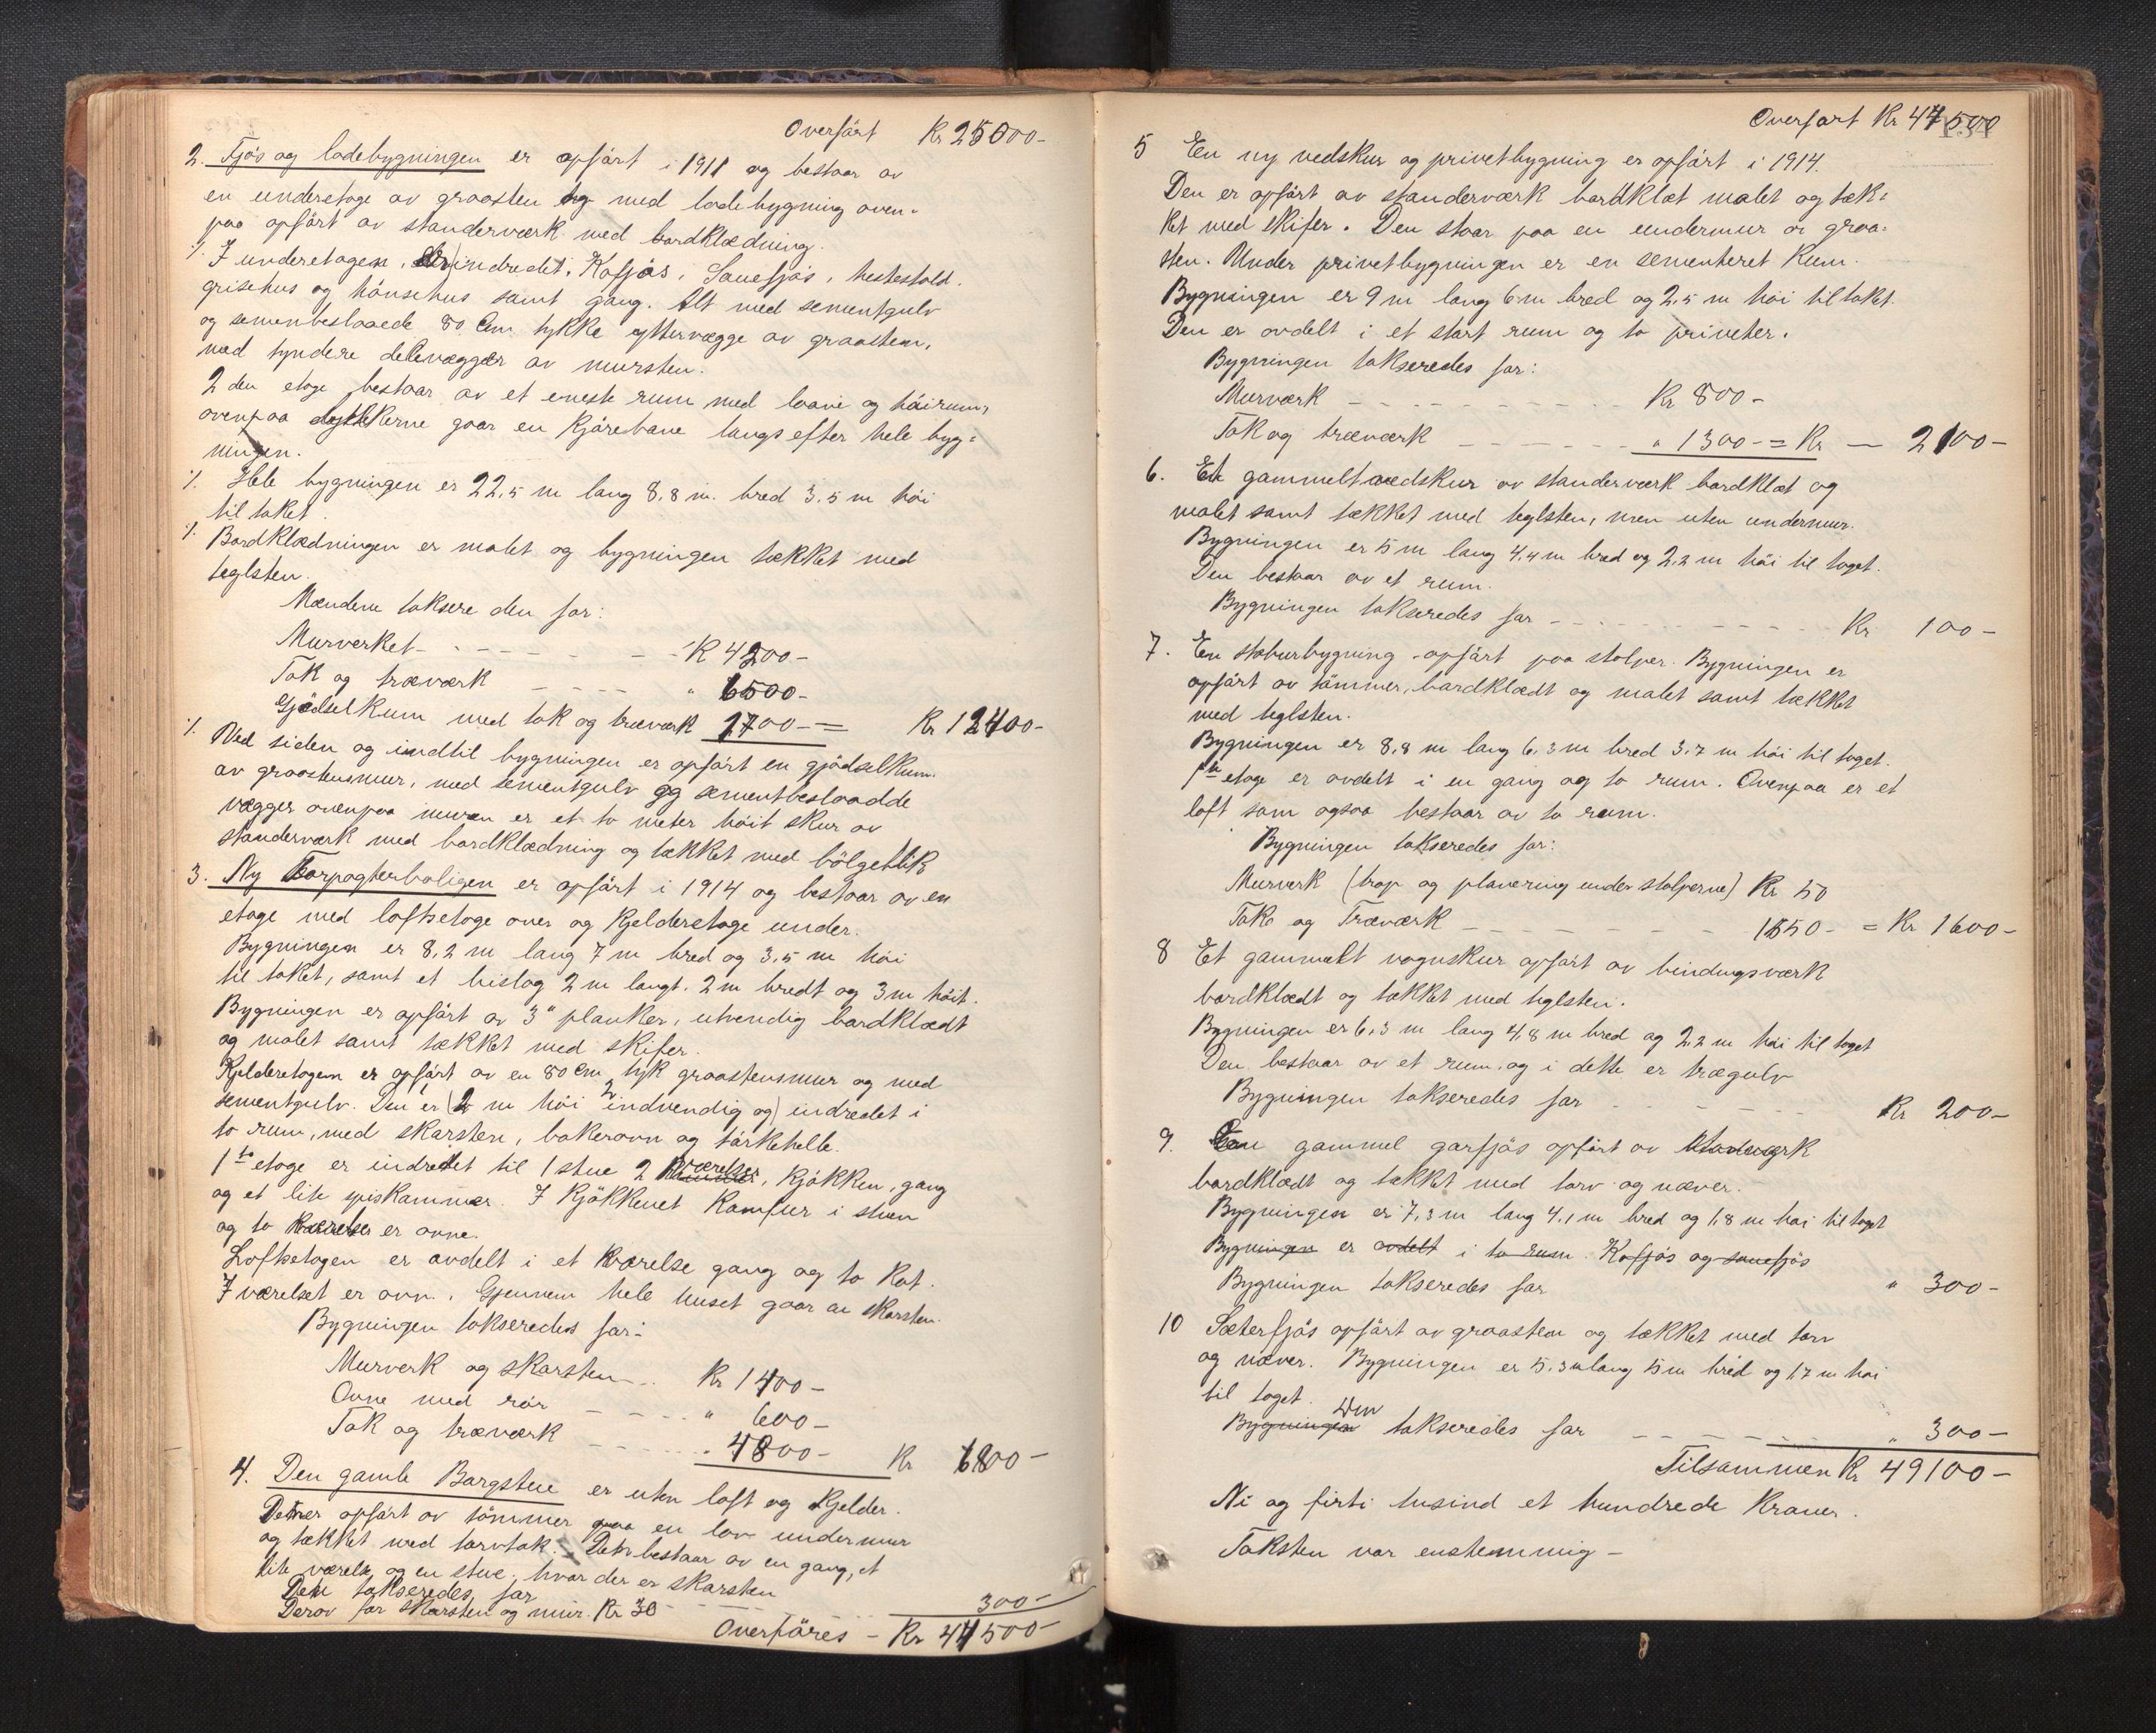 Overført Kr 25000-
2. Fjøs og ladebygningen er opført i 1911 og bestaar av
en underetage av graasten og med ladebygning oven-
paa opført av standerværk med bordklædning.
·/. I underetagen, er indredet: Kofjøs, Sauefjøs, hestestald.
grisehus og hönsehus samt gang. Alt med sementgulv
og semenbeslaaede 80 Cm tykke yttervægge av graasten,
med tyndere delevægger av mursten.
2den etage bestaar av et eneste rum med laave og høirum,
ovenpaa gaar en Kjørebane langs efter hele byg-
ningen.
·/. Hele bygningen er 22,5 m lang 8,8 m. bred 3.5 m høi
til taket.
·/. Bordklædningen er malet og bygningen tækket med
teglsten.
Mændene taksere den for:
Murverket - - - - - - K 4200-
Tak og træværk - - - - " 6500-
Gjødselkum med tak og træværk 1700- = Kr 12400-
·/. Ved siden og indtil bygningen er opført en gjødselkum
av graastensmur, med sementgulv og sementbeslaadde
vægger ovenpaa muren er et to meter høit skur av
standerværk med bordklædning og tækket med bölgeblik
3. Ny Forpagterboligen er opført i 1914 og bestaar av en
etage med loftsetage over og Kjelderetage under.
Bygningen er 8,2 m lang 7 m bred og 3,5 m høi
til taket, samt et bislag 2 m langt. 2 m bredt og 3 m høit.
Bygningen er opført av 3" planker, utvendig bordklædt
og malet samt tækket med skifer.
Kjelderetagen er opført av en 80 Cm tyk graastensmur og med
sementgulv. Den er (2 m høi indvendig og) indredet i
to rum, med skorsten, bakerovn og törkehelle.
1ste etage er indredet til 1 stue 2 værelser, Kjøkken, gang
og et lite spiskammer. I Kjøkkenet Komfur i stuen
og to værelser er ovne.
Loftsetagen er avdelt i et værelse gang og to Kot.
I værelset er ovn. Gjennem hele huset gaar en skorsten.
Bygningen takseredes for:
Murverk og skorsten - .. Kr 1400-
Ovne med rør - - - - " 600-
Tak og træværk - - - - " 4800- Kr 6800-
4. Den gamle Borgstue er uten loft og Kjelder.
Den er opført av tömmer paa en lav undermur
og tækket med torvtak. Den bestaar av en gang, et
lite værelse og en stue, hvor der er skorsten
Den takseredes for - - - - - - - 300-
Derav for skorsten og mur. Kr 30
Overføres - Kr 44500-
Overført Kr 44500
5 En ny vedskur og privetbygning er opført i 1914.
Den er opført av standerværk bordklæt malet og tæk-
ket med skifer. Den staar paa en undermur av graa-
sten. Under privetbygningen er en sementeret Kum.
Bygningen er 9 m lang 6 m bred og 2,5 m høi til taket.
Den er avdelt i et stort rum og to priveter.
Bygningen takseredes for:
Murværk - - - - - - - - - Kr 800-
Tak og træværk - - - - - - " 1300- = Kr - 2100-
6. Et gammelt vedskur av standerværk bordklæt og
malet samt tækket med teglsten, men uten undermur.
Bygningen er 5 m lang 4,4 m bred og 2,2 m høi til taget.
Den bestaar av et rum.
Bygningen takseredes for - - - - - - - - Kr 100-
7. En stabursbygning opført paa stolper. Bygningen er
opført av tömmer, bordklædt og malet samt tækket
med teglsten.
Bygningen er 8,8 m lang 6,3 m bred 3,7 m høi til taget.
1ste etage er avdelt i en gang og to rum. Ovenpaa er et
loft som ogsaa bestaar av to rum.
Bygningen takseredes for:
Murverk (trap og planering under stolperne) Kr 50
Tak og Træværk - - - - - - - 1550- = Kr 1600-
8 Et gammelt vognskur opført av bindingsværk
bordklædt og tækket med teglsten.
Bygningen er 6,3 m lang 4,8 m bred og 2,2 m høi til taget
Den bestaar av et rum, og i dette er trægulv
Bygningen takseredes for - - - - - - - Kr 200-
9. En gammel garfjøs opført av
bordklædt og tækket med torv og næver.
Bygningen er 7,3 m lang 4,1 m bred og 1,8 m høi til taget
Bygningen er avdelt i to rum. Kofjøs og sauefjøs
Bygningen takseredes for " 300-
10 Sæterfjøs opført av graasten og tækket med torv
og næver. Bygningen er 5,3 m lang 5 m bred og 1,7 m høi
til taget.
Bygningen Den takseredes for - - - - - - " 300-
Tilsammen Kr 49100-
Ni og firti tusind et hundrede Kroner.
Taksten var enstemmig -